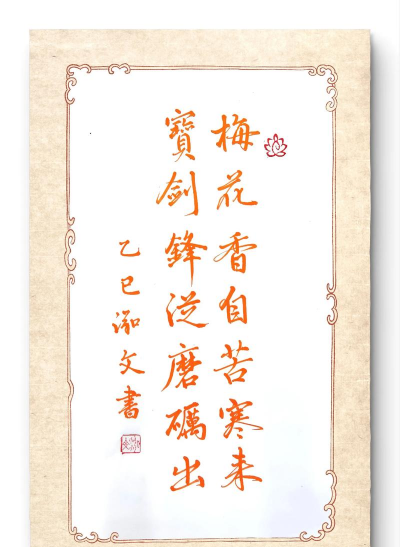 梅花香自苦寒来
寶劍鋒從磨礪出
乙巳泓文書